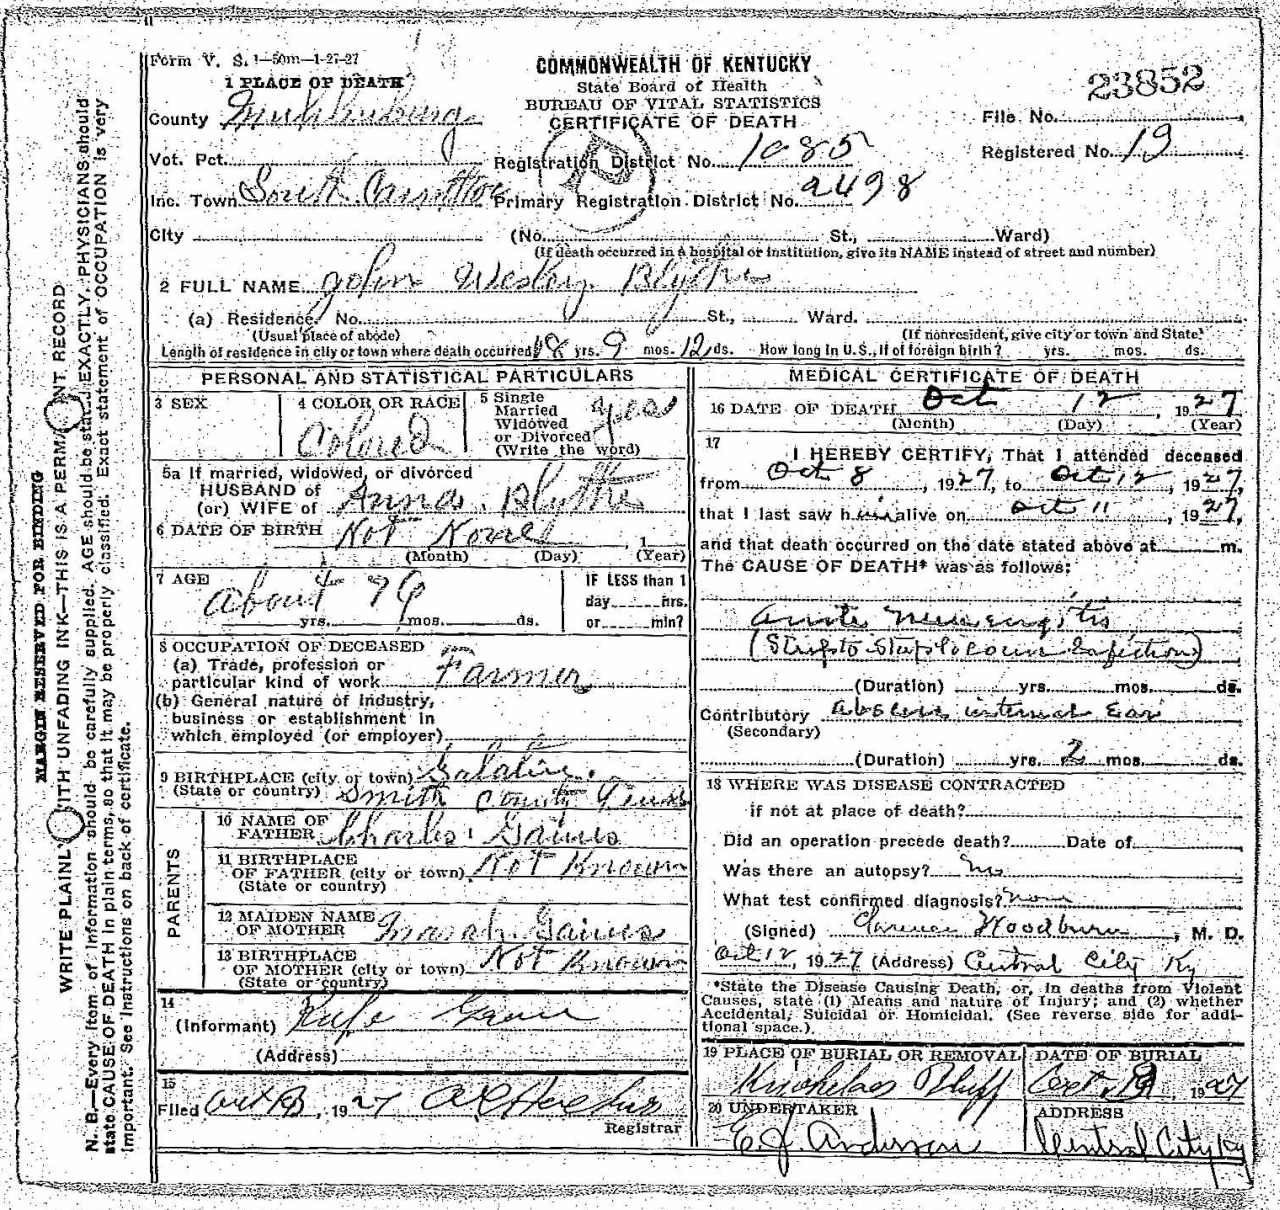 Form V. S. 1—50m—1-27-27
COMMONWEALTH OF KENTUCKY
State Board of Health
BUREAU OF VITAL STATISTICS
CERTIFICATE OF DEATH
23852
File No.
Registered No. 19
1 PLACE OF DEATH
County Muhlenburg
Vot. Pct.
Registration District No. 1085
Inc. Town South Carrollton
Primary Registration District No. 2498
City (No. St., Ward)
(If death occurred in a hospital or institution, give its NAME instead of street and number)
2 FULL NAME John Wesley Blythe
(a) Residence. No. St., Ward.
(Usual place of abode) (If nonresident, give city or town and State)
Length of residence in city or town where death occurred 18 yrs. 9 mos. 12 ds. How long in U.S., if of foreign birth? yrs. mos. ds.
PERSONAL AND STATISTICAL PARTICULARS
3 SEX
4 COLOR OR RACE
Colored
5 Single
Married
Widowed
or Divorced
(Write the word)
yes
5a If married, widowed, or divorced
HUSBAND of
(or) WIFE of Anna Blythe
6 DATE OF BIRTH Not
(Month) (Day) 1 (Year)
7 AGE
about 76
yrs. mos. ds.
IF LESS than 1
day hrs.
or min?
8 OCCUPATION OF DECEASED
(a) Trade, profession or
particular kind of work Farmer
(b) General nature of Industry,
business or establishment in
which employed (or employer)
9 BIRTHPLACE (city or town) Galatin.
(State or country) Smith County Tenn
PARENTS
10 NAME OF
FATHER Charles Gaines
11 BIRTHPLACE
OF FATHER (city or town) Not Known
(State or country)
12 MAIDEN NAME
OF MOTHER Gaines
13 BIRTHPLACE
OF MOTHER (city or town) Not Known
(State or country)
14
(Informant) Rufe
(Address)
15
Filed Oct 13, 1927
Registrar
MEDICAL CERTIFICATE OF DEATH
16 DATE OF DEATH Oct 12, 1927
(Month) (Day) (Year)
17
I HEREBY CERTIFY, That I attended deceased
from Oct 8, 1927, to Oct 12, 1927,
that I last saw him alive on Oct 11, 1927,
and that death occurred on the date stated above at m.
The CAUSE OF DEATH* was as follows:
acute menengitis
(Strepto Staplococcus Infection)
(Duration) yrs. mos. ds.
Contributory Abscess internal Ear
(Secondary)
(Duration) yrs. 2 mos. ds.
18 WHERE WAS DISEASE CONTRACTED
if not at place of death?
Did an operation precede death? Date of
Was there an autopsy? No
What test confirmed diagnosis? none
(Signed) Clarence Woodburn, M. D.
Oct 12, 1927 (Address) Central City Ky
*State the Disease Causing Death, or, in deaths from Violent
Causes, state (1) Means and nature of Injury; and (2) whether
Accidental, Suicidal or Homicidal. (See reverse side for addi-
tional space.)
19 PLACE OF BURIAL OR REMOVAL
Bluff
DATE OF BURIAL
Oct. 1927
20 UNDERTAKER
E. J. Anderson
ADDRESS
Central City Ky
MARGIN RESERVED FOR BINDING
WRITE PLAINLY WITH UNFADING INK—THIS IS A PERMANENT RECORD
N. B.—Every item of information should be carefully supplied. AGE should be stated EXACTLY. PHYSICIANS should
state CAUSE OF DEATH in plain terms, so that it may be properly classified. Exact statement of OCCUPATION is very
important. See instructions on back of certificate.